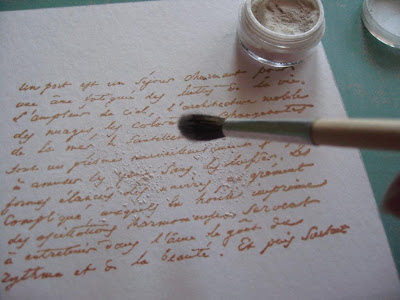 Un port est un séjour charmant pour
une âme fatiguée des luttes de la vie.
L'ampleur du ciel, l'architecture mobile
des nuages, les colorations changeantes
de la mer, le
sont un prisme merveilleusement
à amuser les yeux sans les lasser. Les
formes élancées des navires, au gréement
compliqué, auxquels la houle imprime
des oscillations harmonieuses servent
à entretenir dans l'âme le goût du
rythme et de la beauté. Et puis surtout